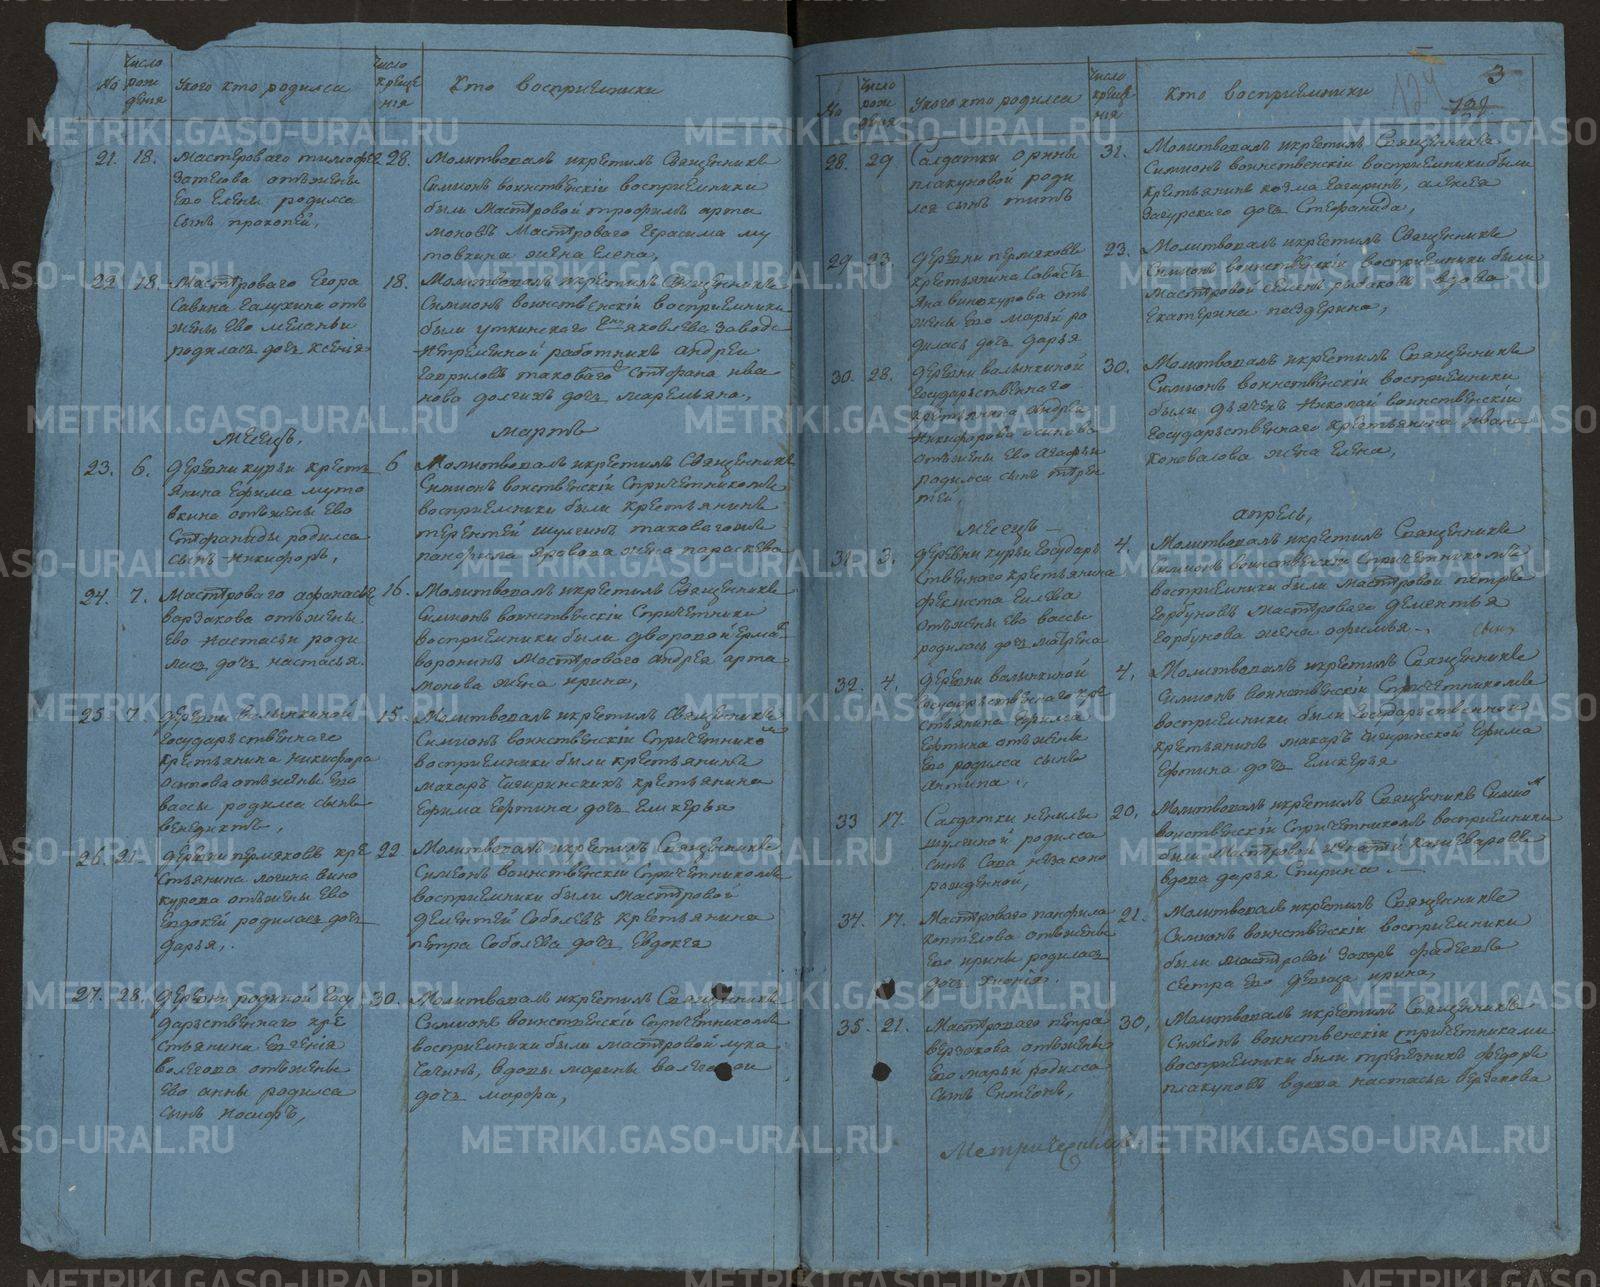 No
Число рождения
Укого кто родился
Число крещения
Кто восприемники
21. 18. Мастероваго тимофея
отъжены
Его Елены родился
сынъ прокопей,
28. Молитвовалъ икрестилъ Священникъ
Симионъ воинственскiй восприемники
были Мастеровой трофимъ арта
моновъ Мастероваго Герасима му
товкина жена Елена,
22 18. Мастероваго Егора
Савина Галухина отъ
жены Ево меланьи
родилась дочь ксенiя
18. Молитвовалъ икрестилъ Священникъ
Симионъ воинственскiй восприемники
были уткинского яковлева завода
непременной работникъ андреи
Гавриловъ таковаго Стефана ива
нова долгихъ дочь маремьяна,
месецъ,
мартъ
23. 6. деревни курьи кресть
янина Ефима муто
вкина отъжены Ево
Стефаниды родился
сынъ никифоръ,
6 Молитвовалъ икрестилъ Священникъ
Симионъ воинственскiй Спричетникомъ
восприемники были крестьянинъ
терентей шулгинъ таковагожъ
панфила яровова жена параскева
24. 7. Мастероваго афанасья
варзакова отъжены
Ево настасьи роди
лась дочь настасья.
16. Молитвовалъ икрестилъ Священникъ
Симионъ воинственскiй Спричетники
восприемники были дворовой Ермалъ
воронинъ Мастероваго андрея арта
монова жена ирина,
25 7 деревни валынкиной
Государьственнаго
крестьянина никифора
осипова отъжены Ево
васы родился сынъ
венедиктъ,
15. Молитвовалъ икрестилъ Священникъ
Симионъ воинственскiй Спричетникомъ
восприемники были крестьянинъ
макаръ чигиринскихъ крестьянина
Ефима Ефтина дочь Гликерья
26 21 деревни пермяковъ кре
стьянина логина вино
курова отъжены Ево
Евдокеи родилась дочь
дарья,
22 Молитвовалъ икрестилъ Священникъ
Симионъ воинственскiй Спричетникомъ
восприемники были мастеровой
дементей Соболевъ крестьянина
петра Соболева дочь Евдокея
27. 28. деревни родиной Госу
дарьственнаго кре
стьянина Евгенiя
волегова отъжены
Ево анны родился
сынъ иосифъ,
30. Молитвовалъ икрестилъ Священникъ
Симионъ воинственскiй Спричетникомъ
восприемники были мастеровой лука
чагинъ, вдовы марины волеговои
дочь марфа,
3
124
No
Число рождения
Укого кто родился
Число крещения
Кто восприемники
28. 29 Салдатки орины
плакуновой роди
лся сынъ титъ
31. Молитвовалъ икрестилъ Священникъ
Симионъ воинственскiй восприемники были
крестьянинъ козма Гагаринъ, алексея
Загурскаго дочь Стефанида,
29 23 деревни пермяковъ
крестьянина Савасть
яна винокурова отъ
жены Ево марьи ро
дилась дочь дарья
23. Молитвовалъ икрестилъ Священникъ
Симионъ воинственскiй восприемники были
мастеровой рыбаковъ вдова
Екатерина паздерина,
30. 28. деревни валынкиной
Государьственнаго
крестьянина андрея
никифорова осипова
отъжены Ево агафьи
родился сынъ терен
тей,
30. Молитвовалъ икрестилъ Священникъ
Симионъ воинственскiй восприемники
были дьячекъ николай воинственскiй
Государьственнаго крестьянина ивана
коновалова жена Елена,
месецъ
апрель,
31 3. деревни курьи Государь
ственнаго крестьянина
феклиста Гилева
отъжены Ево васы
родилась дочь матрена
4. Молитвовалъ икрестилъ Священникъ
Симионъ воинственскiй Спричетникомъ
восприемники были Мастеровой петръ
Горбуновъ мастероваго дементья
Горбунова жена афимья
32. 4. деревни валынкиной
Государьственнаго кре
стьянина Ефима
Ефтина отъжены
Ево родился сынъ
антипа,
4, Молитвовалъ икрестилъ Священникъ
Симионъ воинственскiй Спричетникомъ
восприемники были Государьственной
крестьянинъ макаръ чигиринской Ефима
Ефтина дочь Гликерья
33 17. Салдатки ненилы
шулгиной родился
сынъ Сава незаконо
рожденной,
20. Молитвовалъ икрестилъ Священникъ Симио
воинственскiй Спричетникомъ восприемники
были мастеровой игнатей
вдова дарья Спирина.
34. 17. Мастероваго панфила
коптелова отъжены
Ево ирины родилась
дочь хионiя.
21. Молитвовалъ икрестилъ Священникъ
Симионъ воинственскiй восприемники
были мастеровой Захаръ фадеевъ
сестра Ево девица ирина,
35. 21. Мастероваго петра
верзакова отъжены
Ево марьи родился
сынъ Симеонъ,
30, Молитвовалъ икрестилъ Священникъ
Симеонъ воинственскiй спричетниками
восприемники были федоръ
плакуновъ вдова настасья верзакова
METRIKI.GASO-URAL.RU